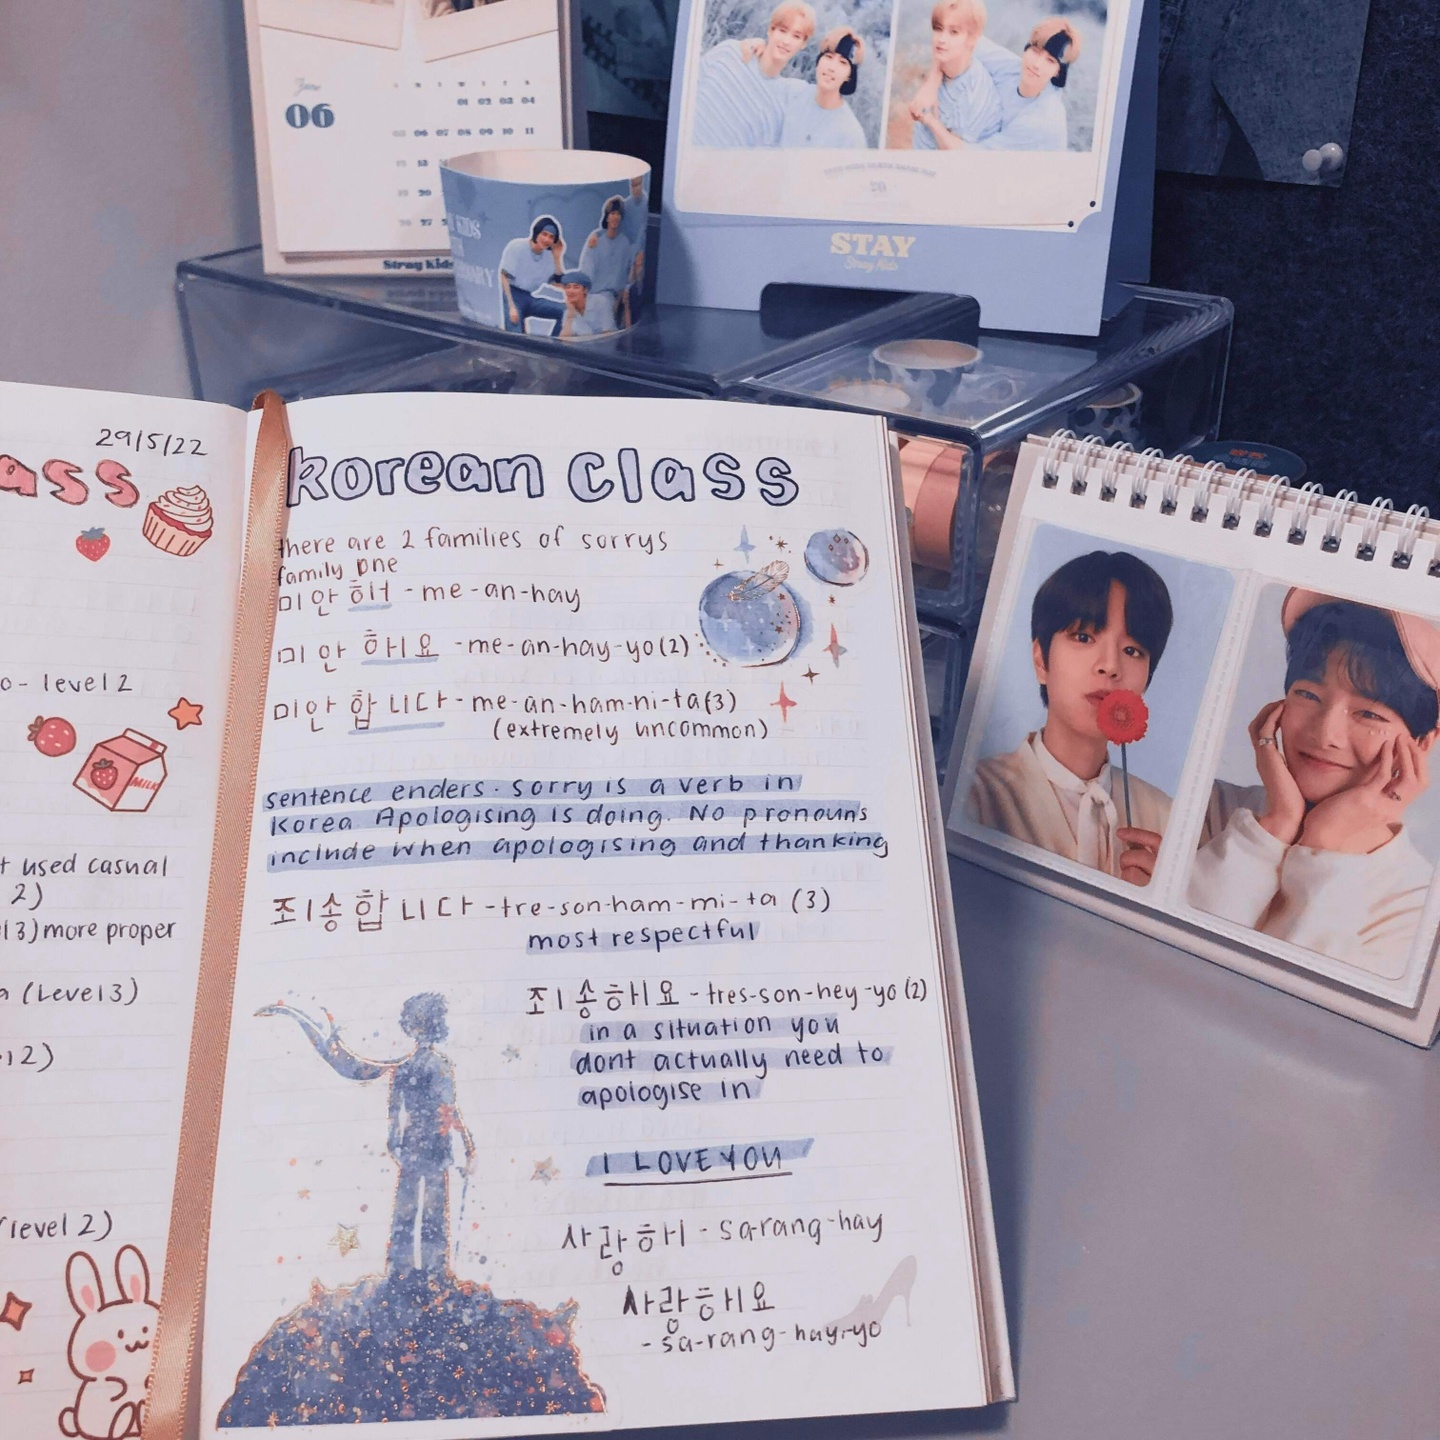 June
06
01 02 03 04
06 07 08 09 10 11
Stray Kids
KIDS
STAY
Stray Kids
29/5/22
ass
o - level 2
MILK
t used casual
2)
l3) more proper
a (Level 3)
l2)
(level 2)
korean class
there are 2 families of sorrys
family one
미안 해 - me-an-hay
미안 해요 - me-an-hay-yo (2)
미안 합니다 - me-an-ham-ni-ta (3)
(extremely uncommon)
sentence enders. sorry is a verb in
Korea Apologising is doing. No pronouns
include when apologising and thanking
죄송합니다 - tre-son-ham-mi-ta (3)
most respectful
죄송해요 - tres-son-hey-yo (2)
in a situation you
dont actually need to
apologise in
I LOVE YOU
사랑해 - sa-rang-hay
사랑해요
- sa-rang-hay-yo